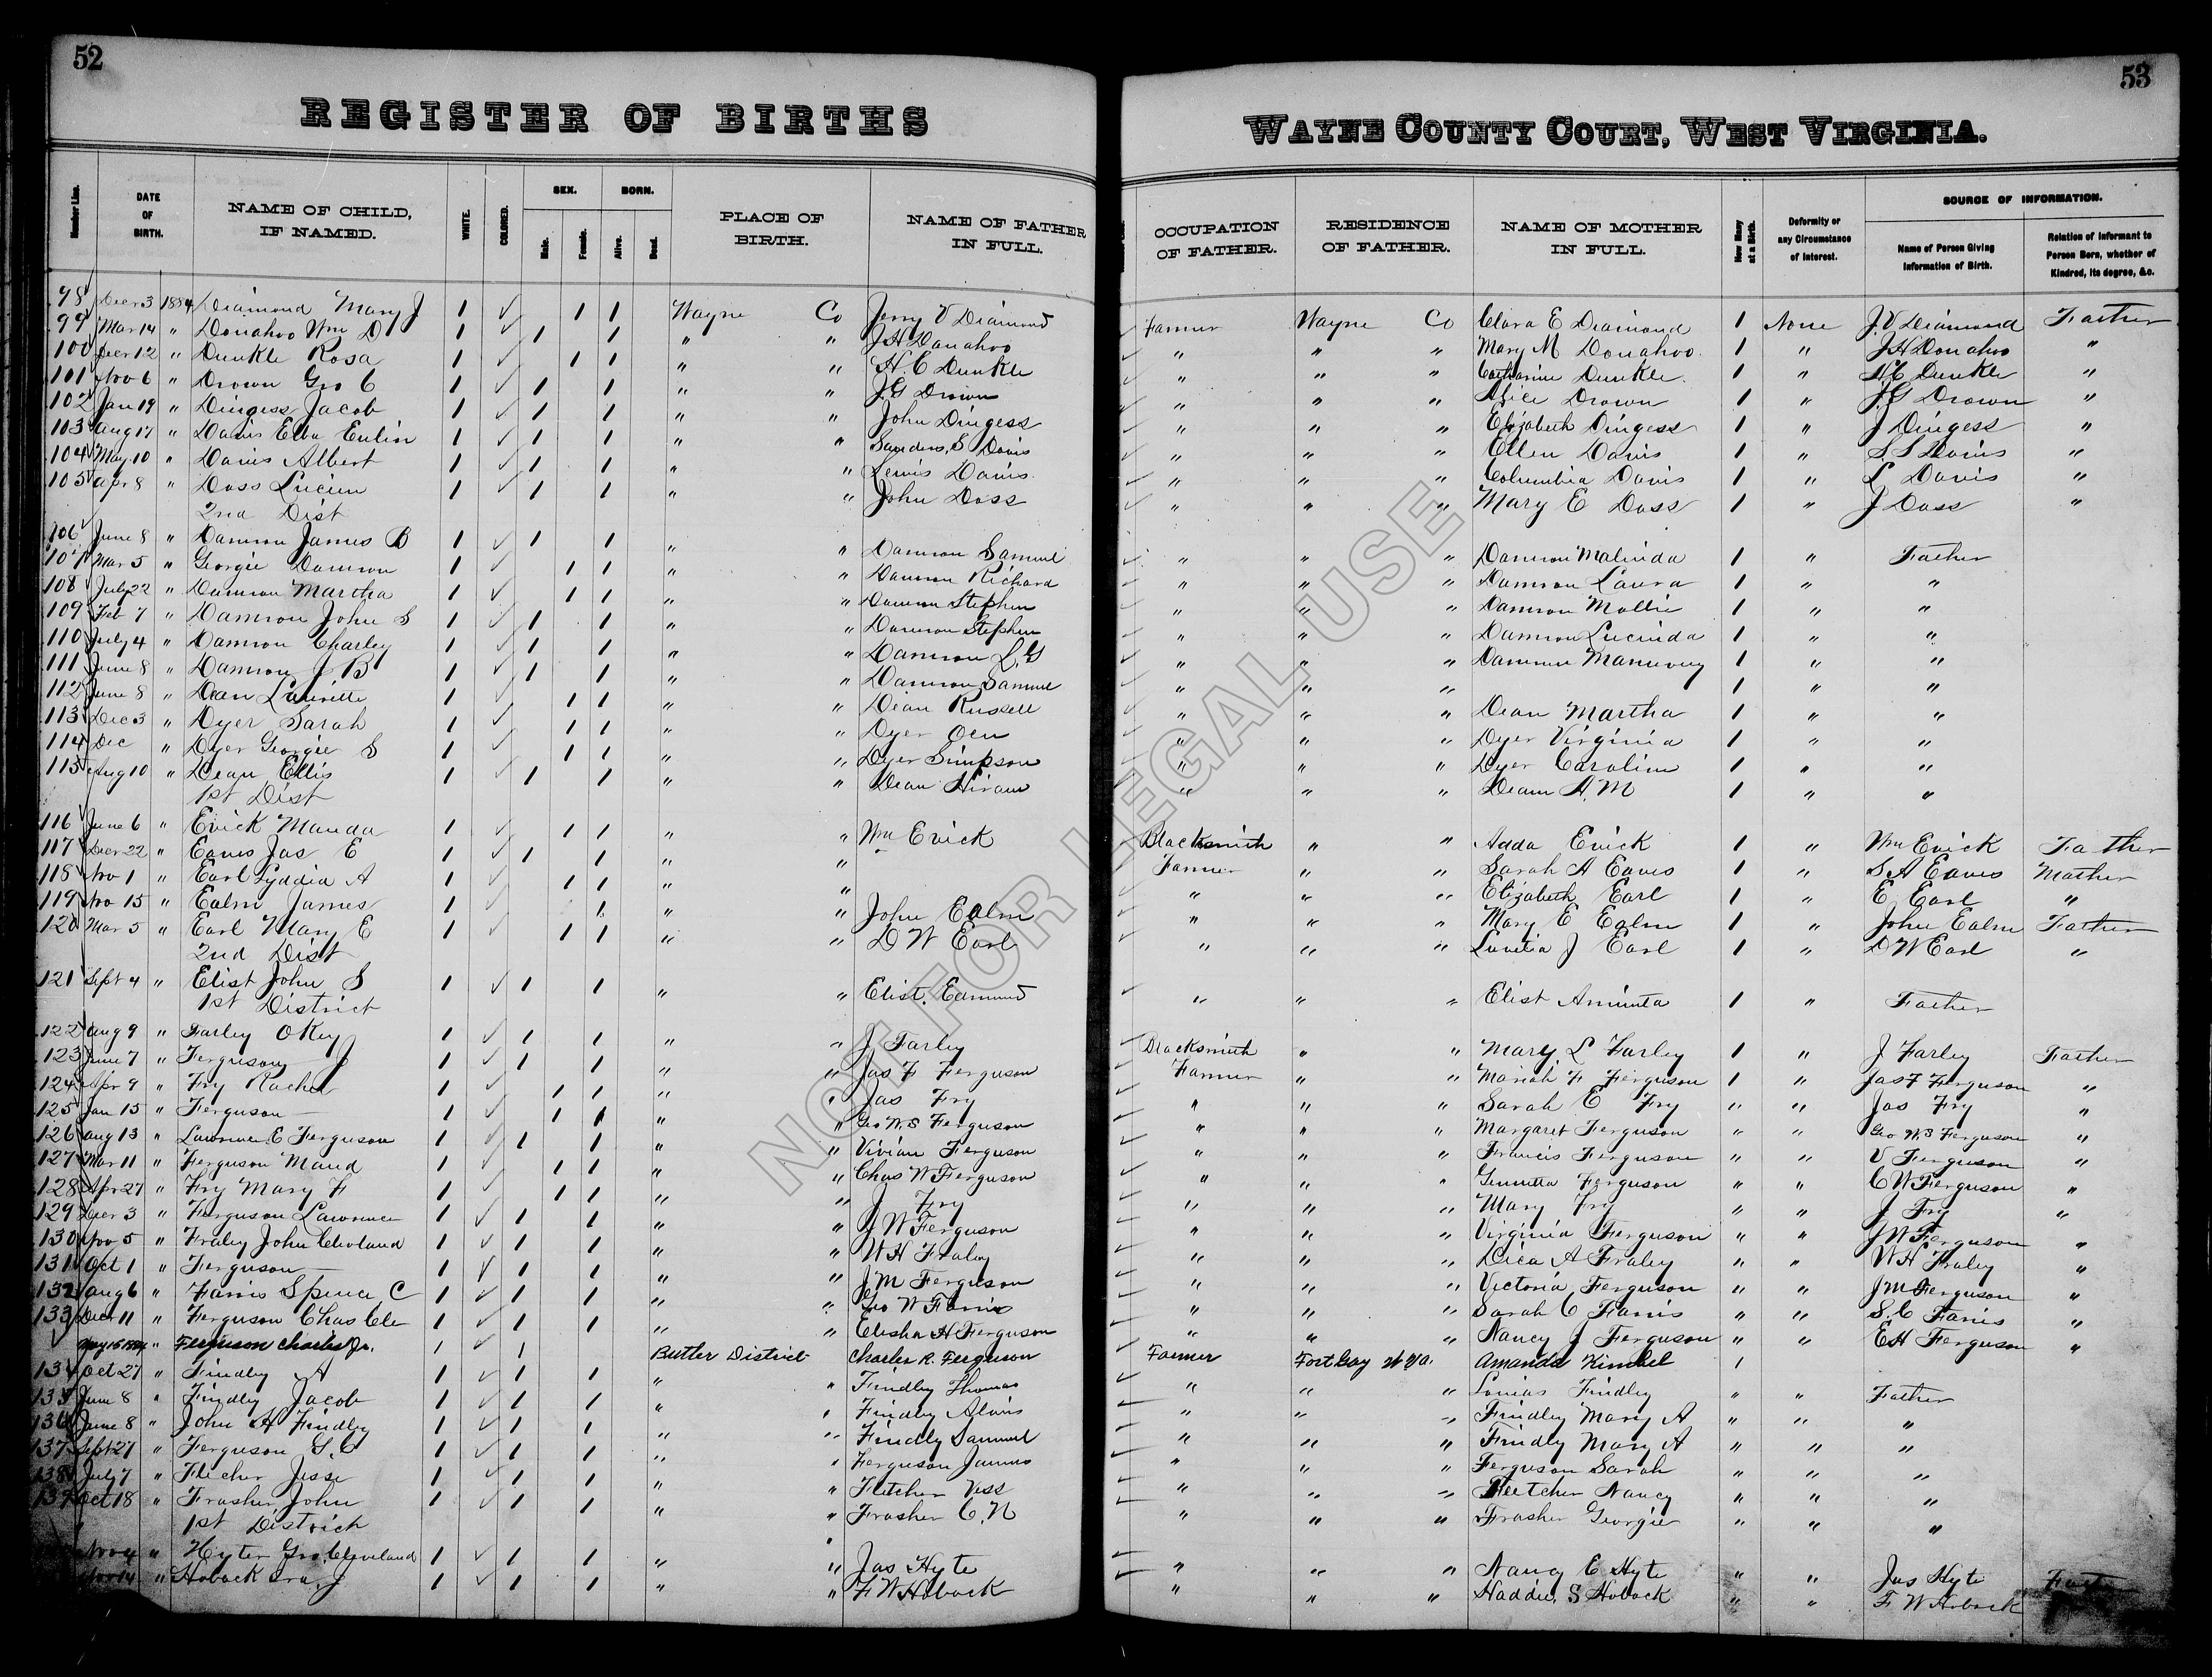 52
REGISTER OF BIRTHS
Number Line.
DATE OF BIRTH.
NAME OF CHILD, IF NAMED.
WHITE.
COLORED.
SEX.
Male.
Female.
BORN.
Alive.
Dead.
PLACE OF BIRTH.
NAME OF FATHER IN FULL.
98 Decr 3 1884 Diamond Mary J 1 ✓ 1 1 Wayne Co Jerry V Diamond
99 Mar 14 " Donahoo Wm D 1 ✓ 1 1 " " J H Donahoo
100 Decr 12 " Dunkle Rosa 1 ✓ 1 1 " " H. C Dunkle
101 Nov 6 " Drown Geo C 1 ✓ 1 1 " " J. G Drown
102 Jan 19 " Dingess Jacob 1 ✓ 1 1 " " John Dingess
103 Aug 17 " Davis Elba 1 ✓ 1 1 " " Sanders S Davis
104 May 10 " Davis Albert 1 ✓ 1 1 " " Lewis Davis
105 Apr 8 " Doss Lucien 1 ✓ 1 1 " " John Doss
2nd Dist
106 June 8 " Damron James B 1 ✓ 1 1 " " Damron Samuel
107 Mar 5 " Georgie Damron 1 ✓ 1 1 " " Damron Richard
108 July 22 " Damron Martha 1 ✓ 1 1 " " Damron Stephen
109 Feb 7 " Damron John S 1 ✓ 1 1 " " Damron Stephen
110 July 4 " Damron Charley 1 ✓ 1 1 " " Damron L. G
111 June 8 " Damron J B 1 ✓ 1 1 " " Damron Samuel
112 June 8 " Dean 1 ✓ 1 1 " " Dean Russell
113 Dec 3 " Dyer Sarah 1 ✓ 1 1 " " Dyer
114 Dec " Dyer Georgie S 1 ✓ 1 1 " " Dyer Simpson
115 Aug 10 " Dean Ellis 1 ✓ 1 1 " " Dean Hiram
1st Dist
116 June 6 " Evick Manda 1 ✓ 1 1 " " Wm Evick
117 Decr 22 " Eaves Jas E 1 ✓ 1 1 " "
118 Nov 1 " Earl Lyddia A 1 ✓ 1 1 " "
119 Nov 15 " Ealm James 1 ✓ 1 " " John Ealm
120 Mar 5 " Earl Mary E 1 ✓ 1 1 " " D W Earl
2nd Dist
121 Sept 4 " Elist John S 1 ✓ 1 1 " " Elist. Edmund
1st District
122 Aug 9 " Farley OKey 1 ✓ 1 1 " " J Farley
123 June 7 " Ferguson J 1 ✓ 1 1 " " Jas F Ferguson
124 Apr 9 " Fry Rachel 1 ✓ 1 1 " " Jas Fry
125 Jan 15 " Ferguson — 1 ✓ 1 1 " " Geo W. S Ferguson
126 Aug 13 " Lawrence E Ferguson 1 ✓ 1 1 " " Vivian Ferguson
127 Mar 11 " Ferguson Maud 1 ✓ 1 1 " " Chas W Ferguson
128 Apr 27 " Fry Mary F 1 ✓ 1 1 " " J Fry
129 Decr 3 " Ferguson Lawrence 1 ✓ 1 1 " " J W Ferguson
130 Nov 5 " Fraley John Cleveland 1 ✓ 1 1 " " W H Fraley
131 Oct 1 " Ferguson — 1 ✓ 1 1 " " J M Ferguson
132 Aug 6 " Farris Spencer C 1 ✓ 1 1 " " Geo W Farris
133 Decr 11 " Ferguson Chas Cle 1 ✓ 1 1 " " Elisha H Ferguson
May 15 1884 " Ferguson Charles Jr. 1 ✓ 1 Butler District Charles R. Ferguson
134 Oct 27 " Findley A 1 ✓ 1 1 " " Findley Thomas
135 June 8 " Findley Jacob 1 ✓ 1 1 " " Findley Alvis
136 June 8 " John H Findley 1 ✓ 1 1 " " Findly Samuel
137 Sept 27 " Ferguson S. C 1 ✓ 1 1 " " Ferguson James
138 July 7 " Fletcher Jesse 1 ✓ 1 1 " " Fletcher Vess
139 Oct 18 " Frasher John 1 ✓ 1 1 " " Frasher C. N
1st District
Nov 4 " Hyter Geo. Cleveland 1 ✓ 1 1 " " Jas Hyte
Nov 14 " Hoback Ira. J 1 ✓ 1 1 " " F W Hoback
53
WAYNE COUNTY COURT, WEST VIRGINIA.
OCCUPATION OF FATHER.
RESIDENCE OF FATHER.
NAME OF MOTHER IN FULL.
How Many at a Birth.
Deformity or any Circumstance of Interest.
SOURCE OF INFORMATION.
Name of Person Giving Information of Birth.
Relation of Informant to Person Born, whether of Kindred, its degree, &c.
Farmer Wayne Co Clara E Diamond 1 None J. V Diamond Father
" " " Mary M Donahoo 1 " J H Donahoo "
" " " Catharine Dunkle 1 " H C Dunkle "
" " " Alice Drown 1 " J G Drown "
" " " Elizabeth Dingess 1 " J Dingess "
" " " Ellen Davis 1 " S. S Davis "
" " " Columbia Davis 1 " L Davis "
" " " Mary E Doss 1 " J Doss "
" " " Damron Malinda 1 " Father
" " " Damron Laura 1 " "
" " " Damron Mollie 1 " "
" " " Damron Lucinda 1 " "
" " " Damron 1 " "
" " " 1 " "
" " " Dean Martha 1 " "
" " " Dyer Virginia 1 " "
" " " Dyer Caroline 1 " "
" " " Deam A. M 1 " "
Blacksmith " " Adda Evick 1 " Wm Evick Father
Farmer " " Sarah A Eaves 1 " S A Eaves Mother
" " " Elizabeth Earl 1 " E Earl "
" " " Mary E Ealm 1 " John Ealm Father
" " " Luvetia J Earl 1 " D W Earl "
" " " Elist Aminta 1 " Father
Blacksmith " " Mary L Farley 1 " J Farley Father
Farmer " " Mariah F Ferguson 1 " Jas F Ferguson "
" " " Sarah E Fry " " Jas Fry "
" " " Margaret Ferguson " " Geo W. S Ferguson "
" " " Francis Ferguson " " V Ferguson "
" " " Ferguson " " C W Ferguson "
" " " Mary Fry " " J Fry "
" " " Virginia Ferguson " " J W Ferguson "
" " " Dica A Fraley " " W H Fraley "
" " " Victoria Ferguson " " J M Ferguson "
" " " Sarah C Farris " " S. C Farris "
" " " Nancy J Ferguson " " E H Ferguson "
Farmer Fort Gay W Va. Amanda 1
" " " Findley " " Father
" " " Findley Mary A " " "
" " " Findly Mary A " " "
" " " Ferguson Sarah " " "
" " " Fletcher Nancy " " "
" " " Frasher Georgie " " "
" " " Nancy E Hyte " " Jas Hyte Father
" " " Haddie, S Hoback " " F W Hoback
NOT FOR LEGAL USE